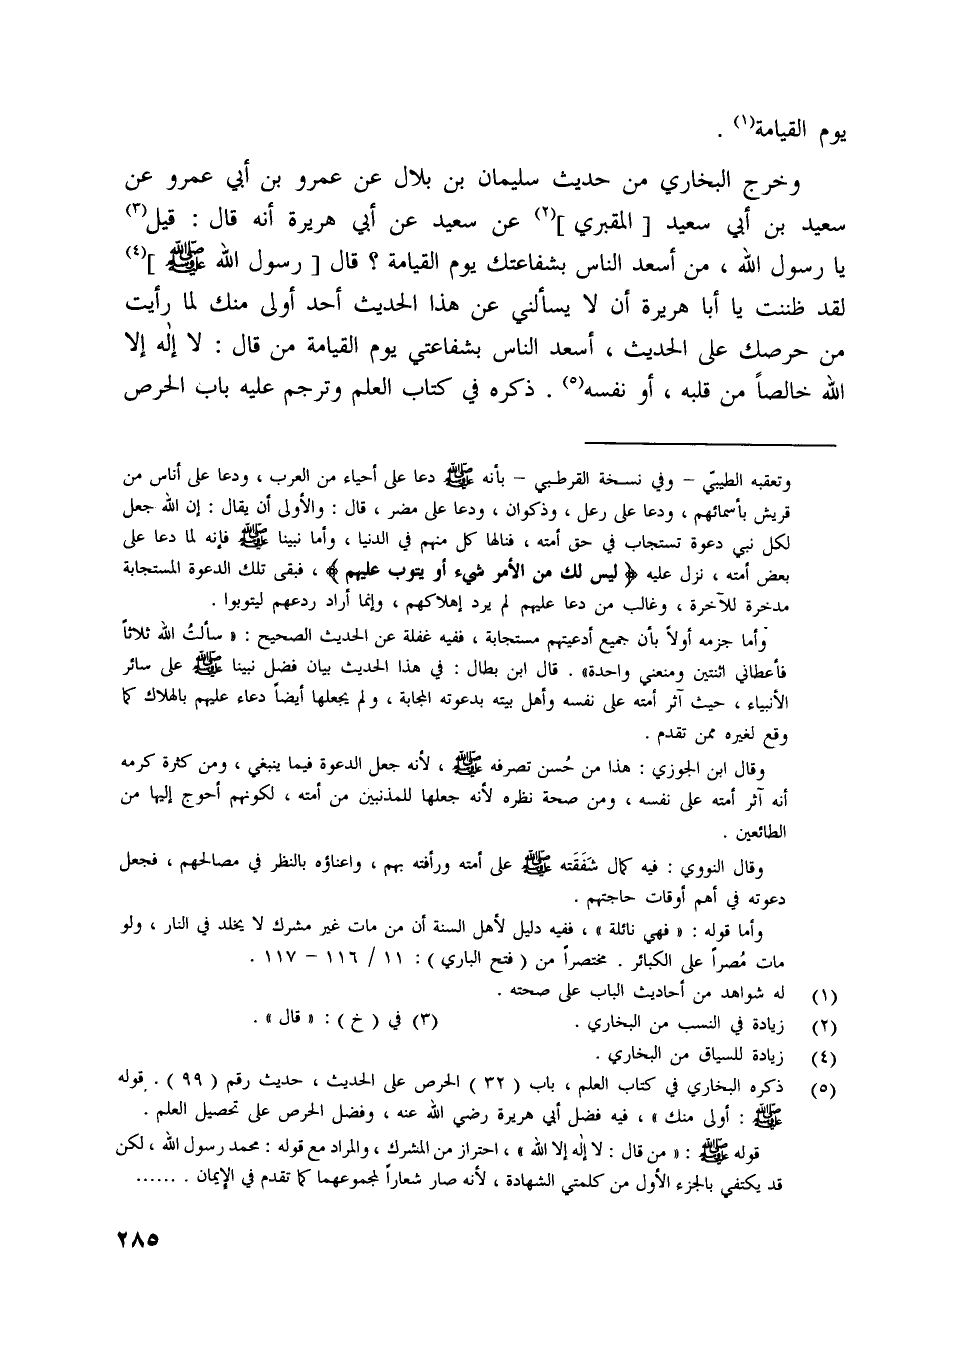 يوم القيامة(١) .
وخرج البخاري من حديث سليمان بن بلال عن عمرو بن أبي عمرو عن
سعيد بن أبي سعيد [ المقبري ](٢) عن سعيد عن أبي هريرة أنه قال : قيل(٣)
يا رسول الله ، من أسعد الناس بشفاعتك يوم القيامة ؟ قال [ رسول الله ﷺ ](٤)
لقد ظننت يا أبا هريرة أن لا يسألني عن هذا الحديث أحد أولى منك لما رأيت
من حرصك على الحديث ، أسعد الناس بشفاعتي يوم القيامة من قال : لا إله إلا
الله خالصاً من قلبه ، أو نفسه(٥) . ذكره في كتاب العلم وترجم عليه باب الحرص
وتعقبه الطيبيّ – وفي نسخة القرطبي – بأنه ﷺ دعا على أحياء من العرب ، ودعا على أناس من
قريش بأسمائهم ، ودعا على رعل ، وذكوان ، ودعا على مضر ، قال : والأولى أن يقال : إن الله جعل
لكل نبي دعوة تستجاب في حق أمته ، فنالها كل منهم في الدنيا ، وأما نبينا ﷺ فإنه لما دعا على
بعض أمته ، نزل عليه ﴿ ليس لك من الأمر شيء أو يتوب عليهم ﴾ ، فبقى تلك الدعوة المستجابة
مدخرة للآخرة ، وغالب من دعا عليهم لم يرد إهلاكهم ، وإنما أراد ردعهم ليتوبوا .
وأما جزمه أولاً بأن جميع أدعيتهم مستجابة ، ففيه غفلة عن الحديث الصحيح : « سألتُ الله ثلاثاً
فأعطاني اثنتين ومنعني واحدة» . قال ابن بطال : في هذا الحديث بيان فضل نبينا ﷺ على سائر
الأنبياء ، حيث آثر أمته على نفسه وأهل بيته بدعوته المجابة ، ولم يجعلها أيضاً دعاء عليهم بالهلاك كما
وقع لغيره ممن تقدم .
وقال ابن الجوزي : هذا من حُسن تصرفه ﷺ ، لأنه جعل الدعوة فيما ينبغي ، ومن كثرة كرمه
أنه آثر أمته على نفسه ، ومن صحة نظره لأنه جعلها للمذنبين من أمته ، لكونهم أحوج إليها من
الطائعين .
وقال النووي : فيه كمال شَفَقَته ﷺ على أمته ورأفته بهم ، واعتاؤه بالنظر في مصالحهم ، فجعل
دعوته في أهم أوقات حاجتهم .
وأما قوله : « فهي نائلة » ، ففيه دليل لأهل السنة أن من مات غير مشرك لا يخلد في النار ، ولو
مات مُصراً على الكبائر . مختصراً من ( فتح الباري ) : ١١ / ١١٦ – ١١٧ .
(١) له شواهد من أحاديث الباب على صحته .
(٢) زيادة في النسب من البخاري . (٣) في ( خ ) : « قال » .
(٤) زيادة للسياق من البخاري .
(٥) ذكره البخاري في كتاب العلم ، باب ( ٣٢ ) الحرص على الحديث ، حديث رقم ( ٩٩ ) . قوله
ﷺ : أولى منك » ، فيه فضل أبي هريرة رضي الله عنه ، وفضل الحرص على تحصيل العلم .
قوله ﷺ : « من قال : لا إله إلا الله » ، احتراز من المشرك ، والمراد مع قوله : محمد رسول الله ، لكن
قد يكتفي بالجزء الأول من كلمتي الشهادة ، لأنه صار شعاراً لمجموعهما كما تقدم في الإيمان . ......
٢٨٥